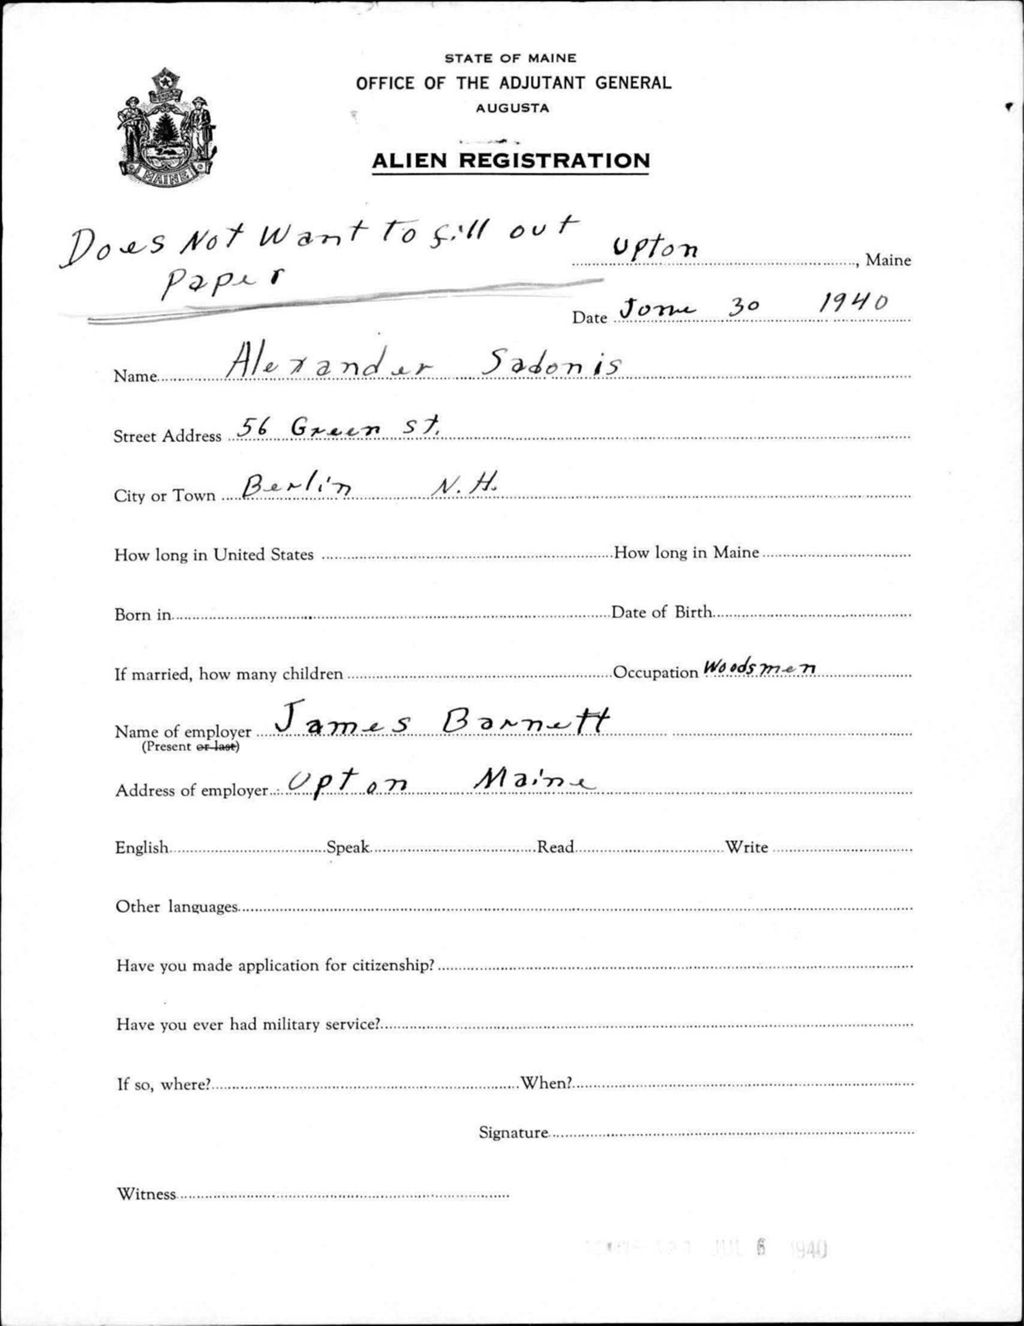 STATE OF MAINE
OFFICE OF THE ADJUTANT GENERAL
AUGUSTA
ALIEN REGISTRATION
MAINE
Does Not Want To fill out
Paper
Upton, Maine
Date June 30 1940
Name Alexander Sadonis
Street Address 56 Green St.
City or Town Berlin N.H.
How long in United States How long in Maine
Born in Date of Birth
If married, how many children Occupation Woodsmen
Name of employer James Barnett
(Present or last)
Address of employer Upton Maine
English Speak Read Write
Other languages
Have you made application for citizenship?
Have you ever had military service?
If so, where? When?
Signature
Witness
JUL 6 1940